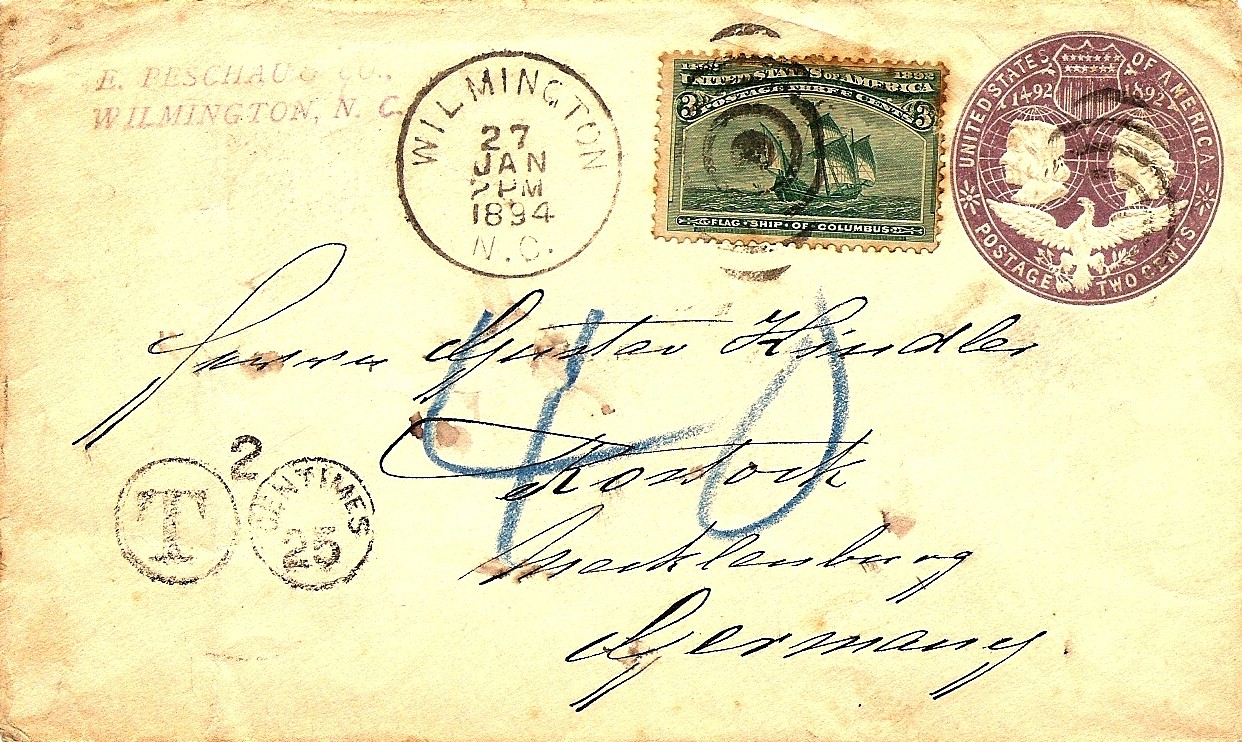 E. PESCHAU & CO.,
WILMINGTON, N. C.
WILMINGTON
27
JAN
PM
1894
N.C.
1492 1892
UNITED STATES OF AMERICA
3 POSTAGE THREE CENTS 3
FLAG · SHIP · OF · COLUMBUS
UNITED STATES OF AMERICA
1492 1892
POSTAGE TWO CENTS
Herrn Gustav Kindler
Rostock
Mecklenburg
Germany.
40
2
T
CENTIMES
25